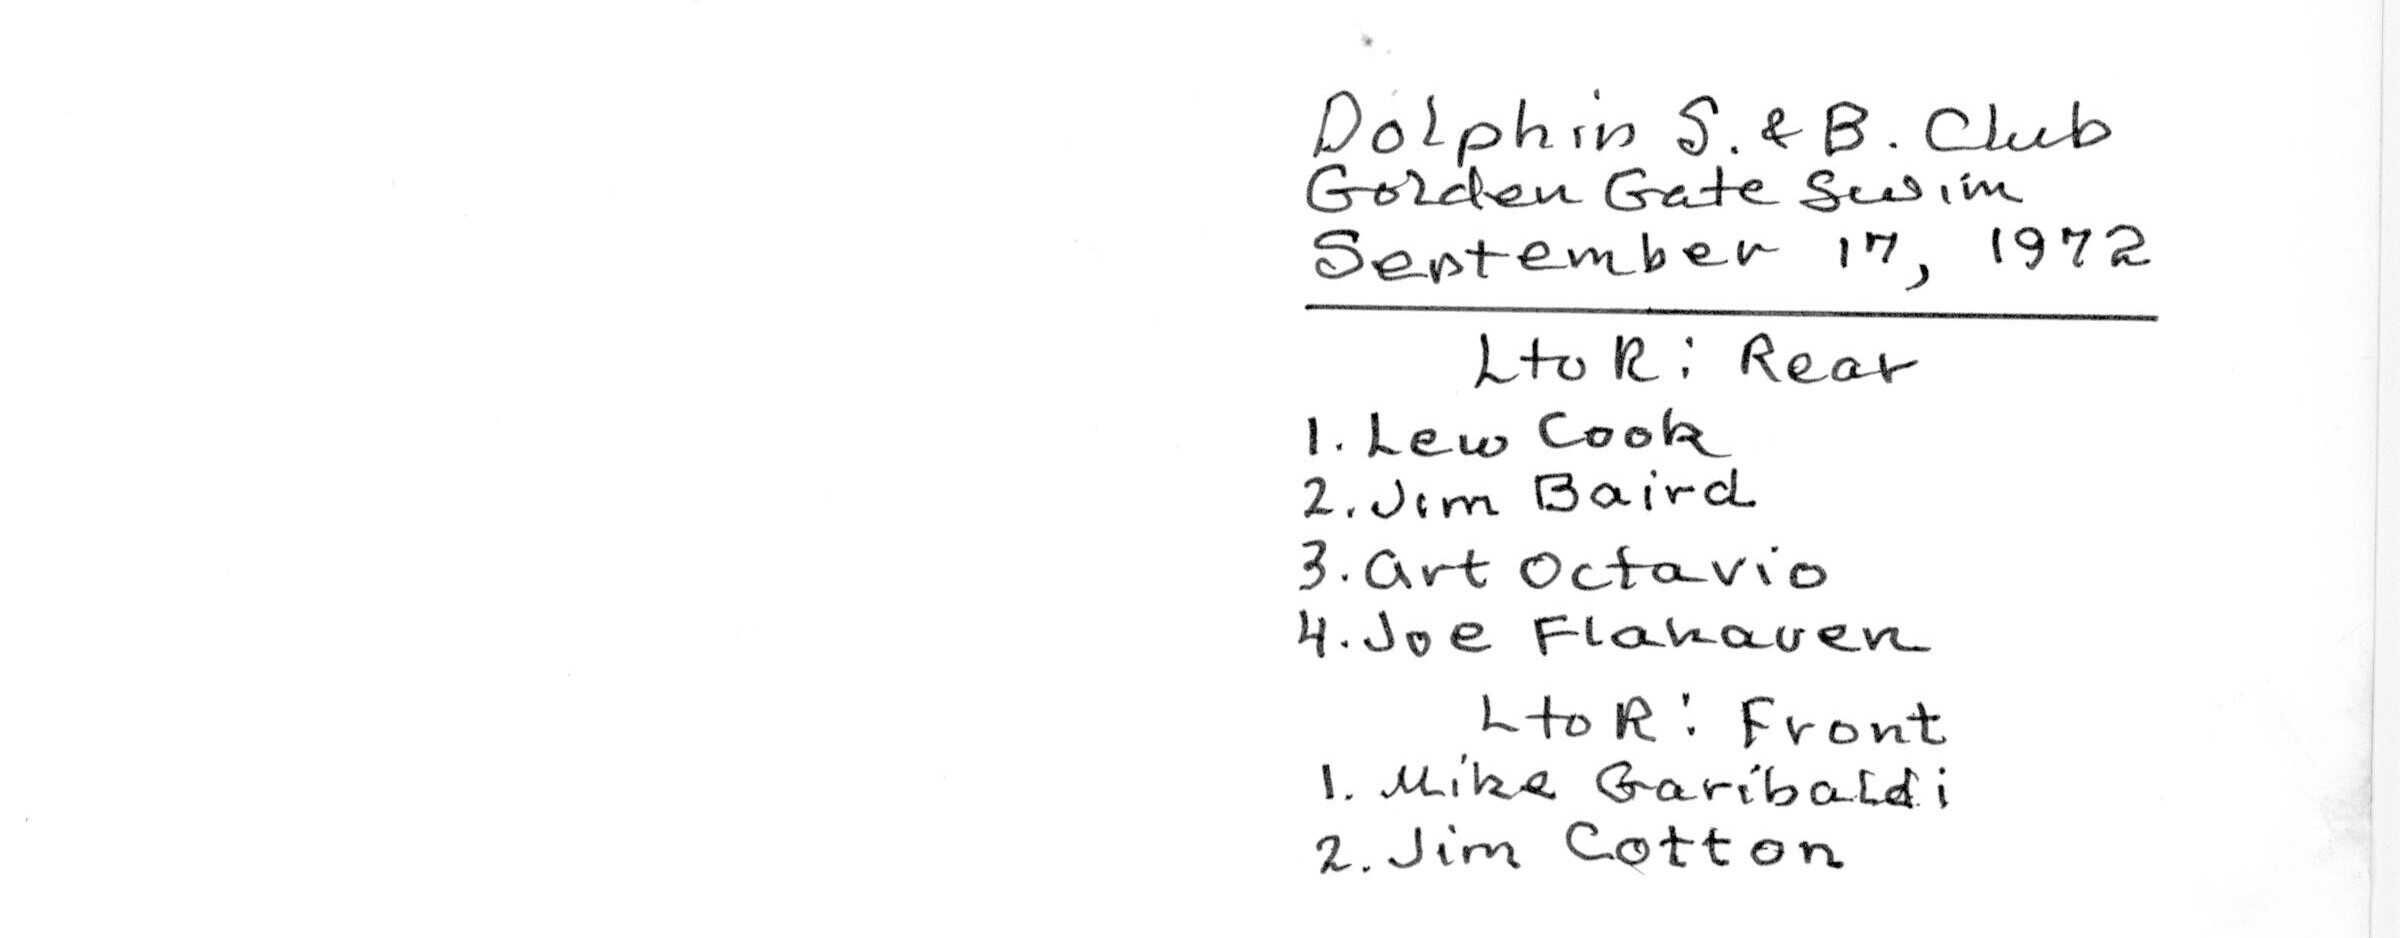 Dolphin S. & B. Club
Golden Gate Swim
September 17, 1972
L to R: Rear
1. Lew Cook
2. Jim Baird
3. Art Octavio
4. Joe Flahaven
L to R: Front
1. Mike Garibaldi
2. Jim Cotton